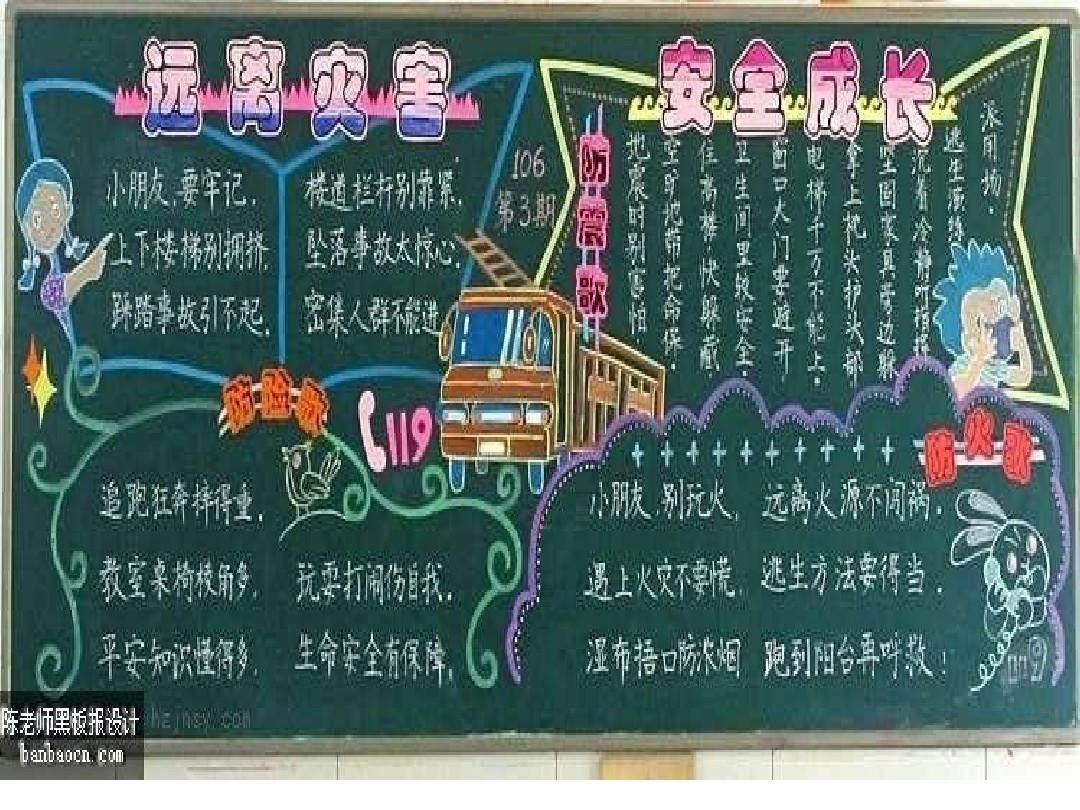 远离灾害
安全成长
106
第3期
小朋友,要牢记,
上下楼梯别拥挤,
踩踏事故引不起,
楼道栏杆别靠紧,
坠落事故太惊心,
密集人群不能进
防震歌
地震时别害怕,
空旷地带把命保,
住高楼快躲藏
卫生间里较安全,
窗口大门要避开
电梯千万不能上,
拿上枕头护头部
坚固家具旁边躲
沉着冷静听指挥
逃生演练
派用场。
119
追跑狂奔摔得重,
教室桌椅棱角多,
平安知识懂得多,
玩耍打闹伤自我,
生命安全有保障,
防火歌
小朋友,别玩火, 远离火源不闯祸,
遇上火灾不要慌, 逃生方法要得当,
湿布捂口防浓烟 跑到阳台再呼救!
陈老师黑板报设计
banbaocn.com